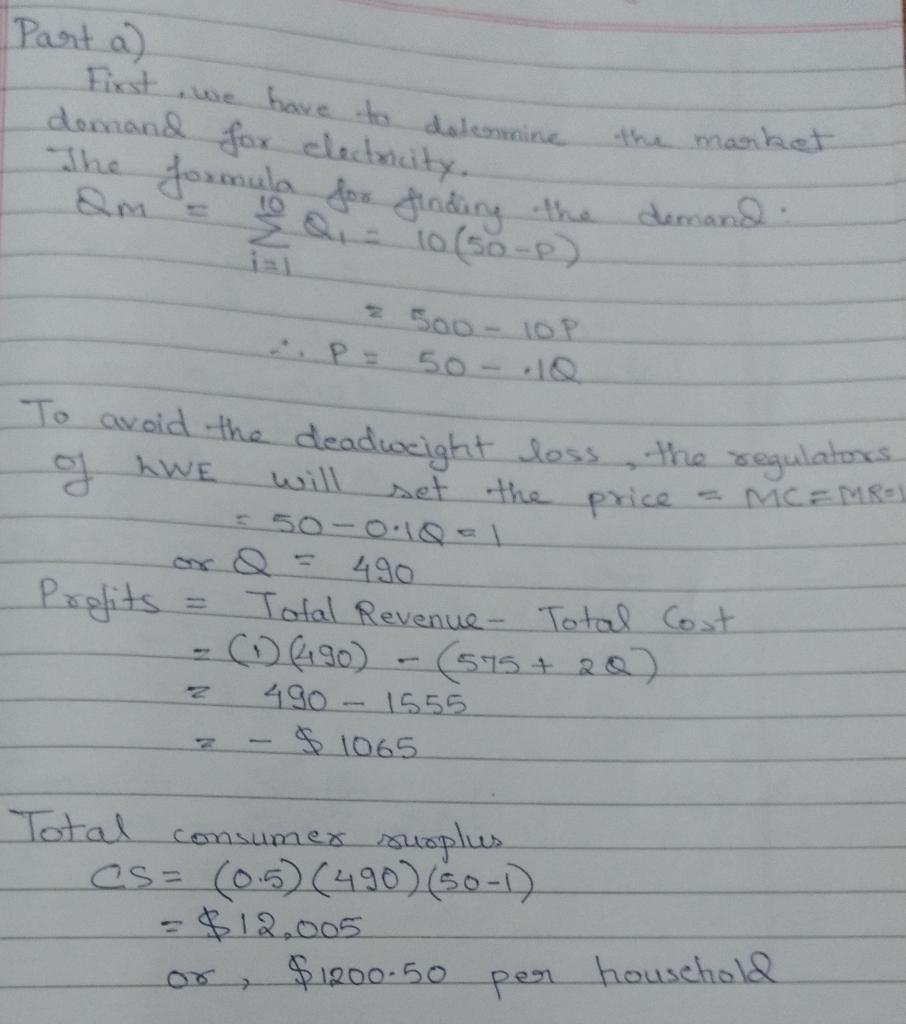 Part a)
First, we have to determine the market
demand for electricity.
The formula for finding the demand:
Qm = 10 Σ i=1 Q₁ = 10(50-P)
= 500 - 10P
∴ P = 50 - .1Q
To avoid the deadweight loss, the regulators
of hWE will set the price = MC = MR = 1
= 50 - 0.1Q = 1
or Q = 490
Profits = Total Revenue - Total Cost
= (1)(490) - (575 + 2Q)
= 490 - 1555
= - $ 1065
Total consumer surplus
CS = (0.5)(490)(50-1)
= $12,005
or, $1200.50 per household